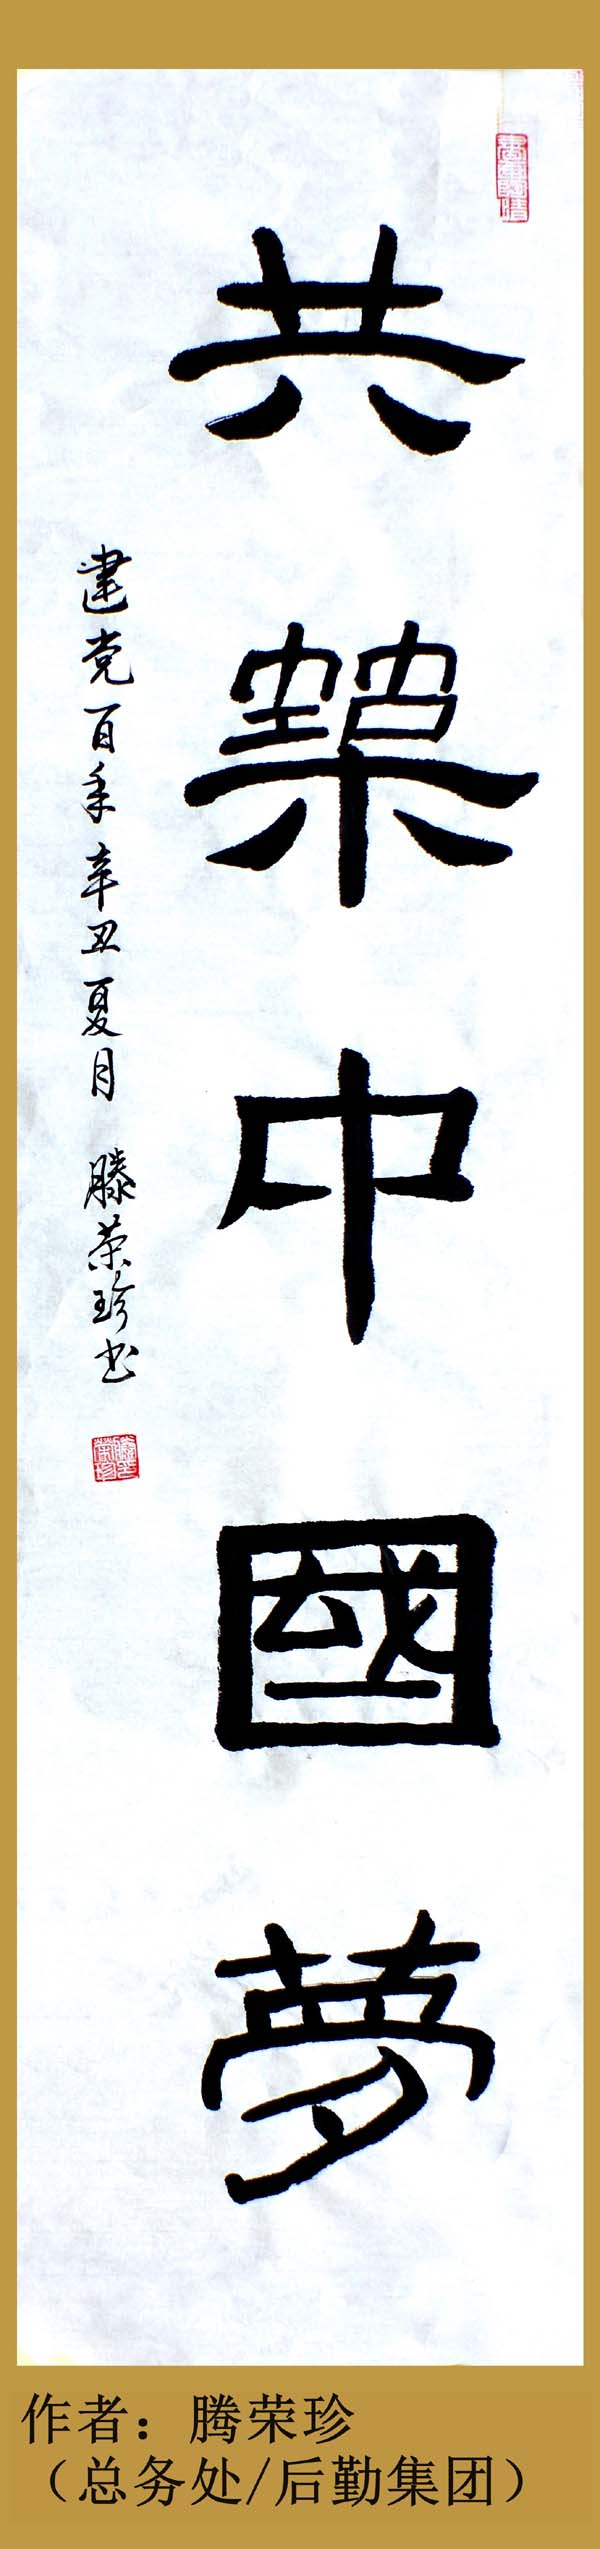 共築中國夢
建党百年辛丑夏月 滕荣珍书
作者：腾荣珍
（总务处/后勤集团）